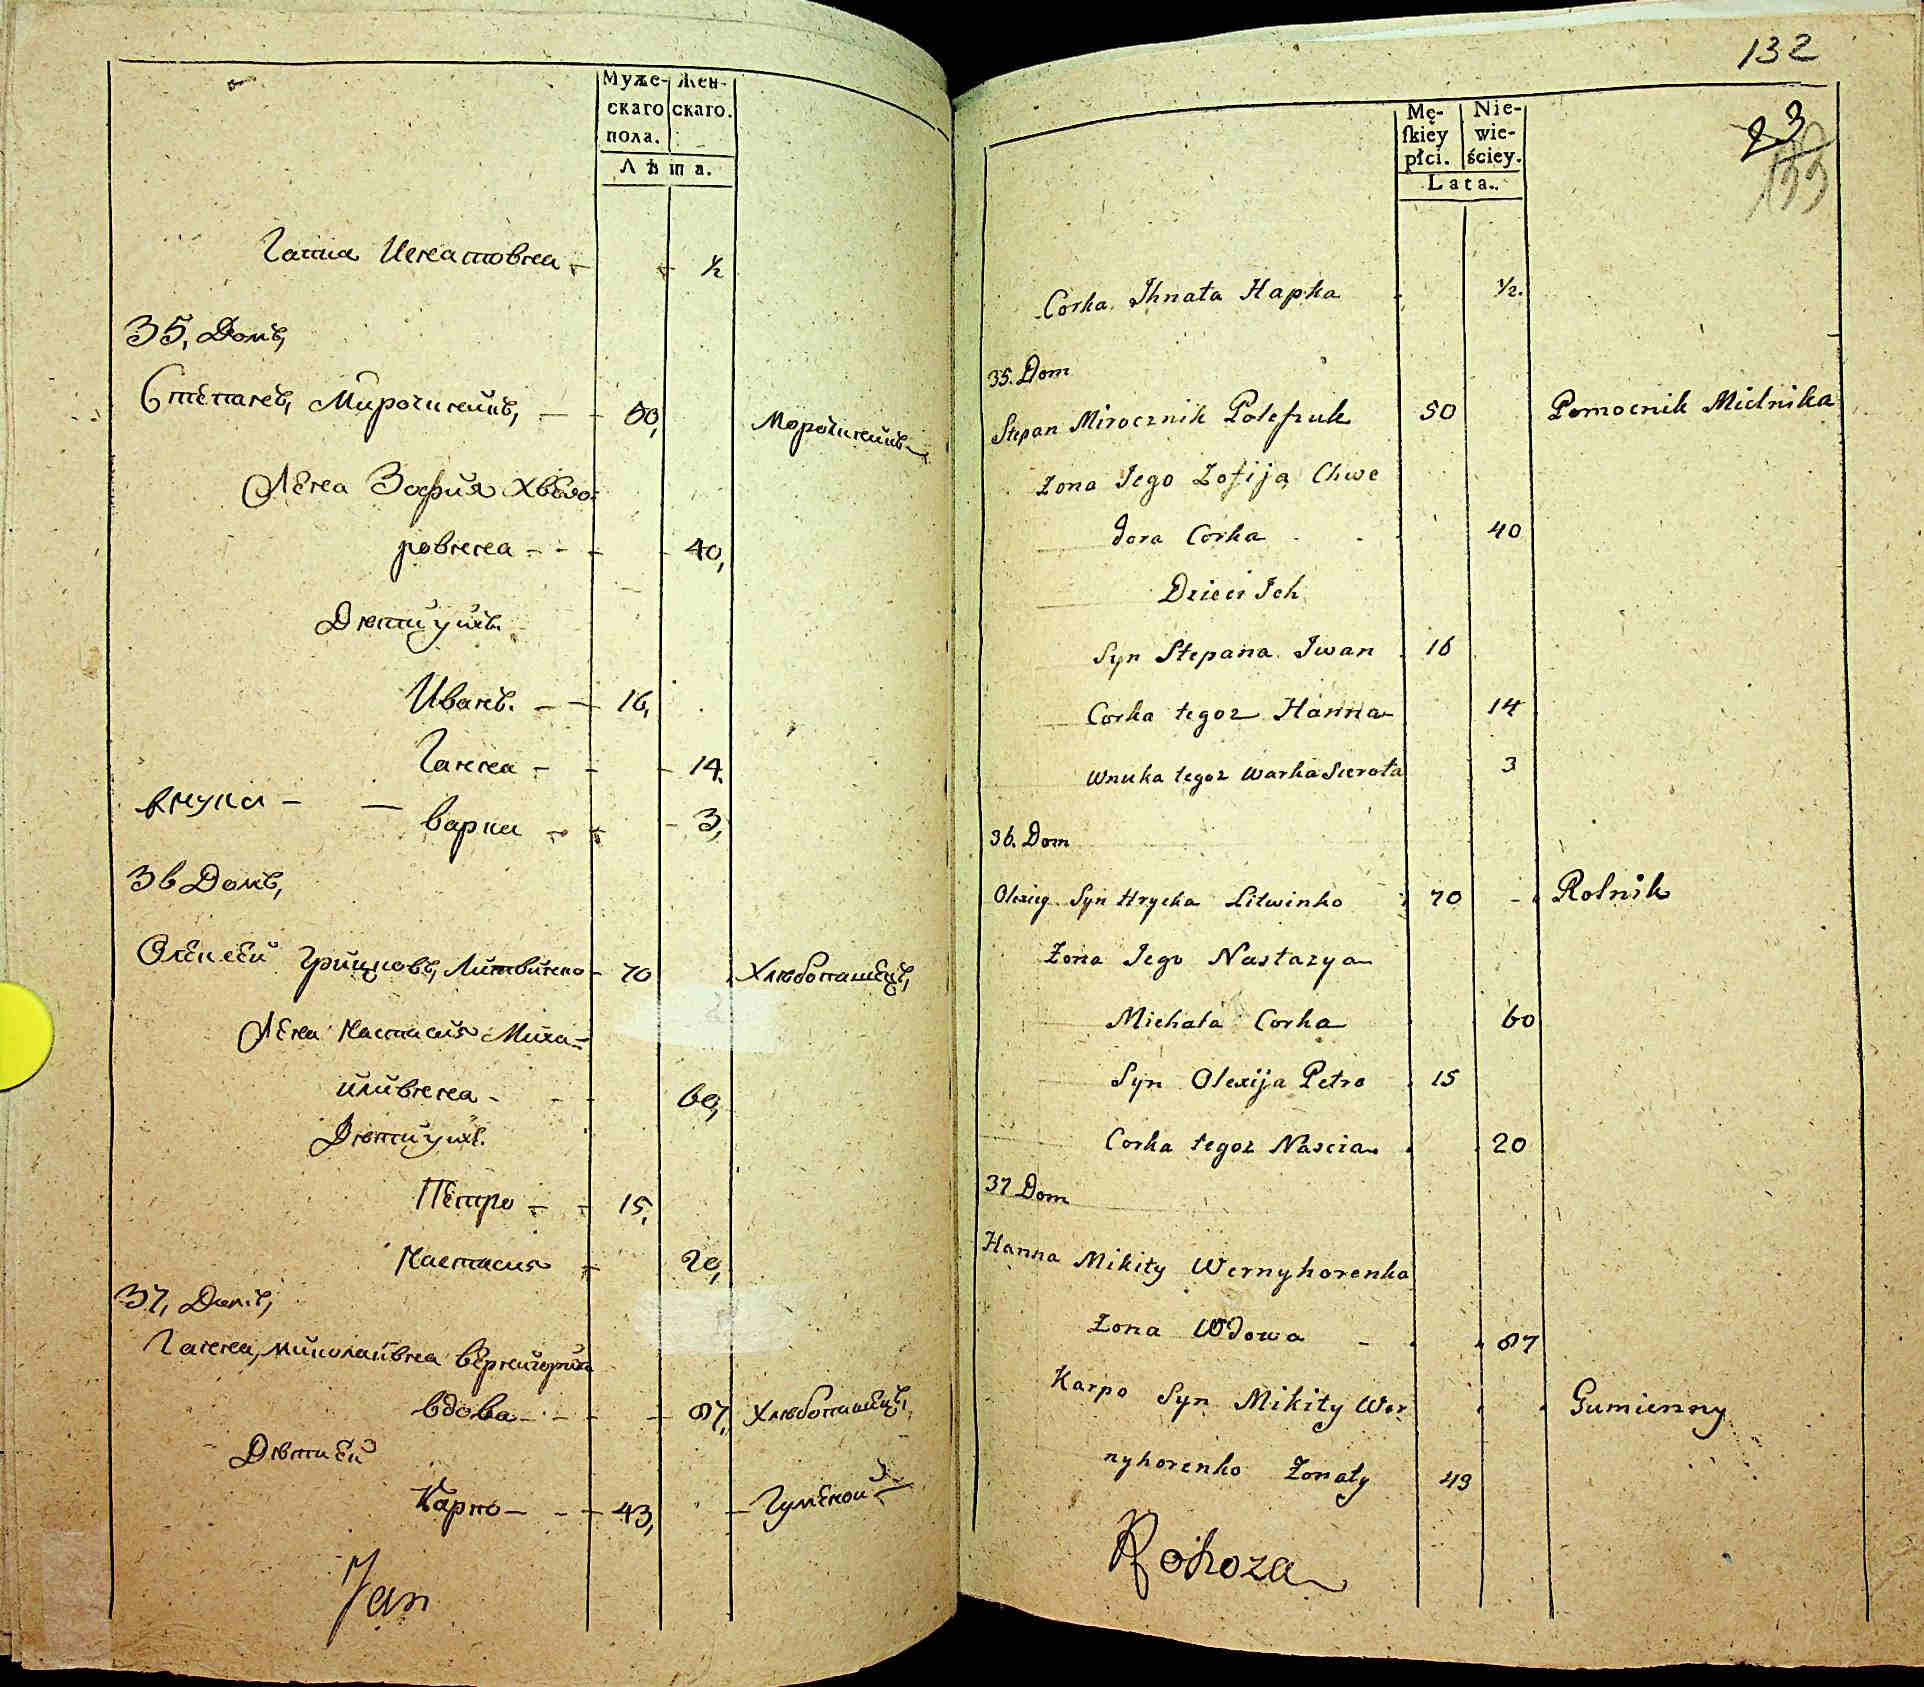 Муже- Жен-
скаго скаго.
пола.
Лѣта.
Гапка Игнатовна ½
35, Домъ,
Степанъ, Мирочникъ, 50, Мирочникъ
Жена Зофия Хведо-
ровна 40,
Дѣти ихъ.
Иванъ. 16,
Ганна 14.
внука варка 3,
36 Домъ,
Олексей Грицковъ, Литвиенко 70 Хлѣбопашецъ,
Жена Настасия Миха-
йливна 60,
Дѣти ихъ.
Петро 15,
Настасия 20,
37, Домъ,
Ганна, миколаивна
вдова 87, Хлѣбопашецъ,
Дѣти ей
Карпо 43, Гуменой
Jan
132
23
133
Mę- Nie-
ſkiey wie-
płci. ściey.
Lata.
Corka Ihnata Hapka ½.
35. Dom
Stepan Mirocznik Poleſzuk 50 Pomocnik Mielnika
Zona Jego Zofija Chwe
dora Corka 40
Dzieci Ich
Syn Stepana Iwan 16
Corka tegoz Hanna 14
Wnuka tegoz Warka Sierota 3
36. Dom
Olexiey Syn Hrycka Litwinko 70 Rolnik
Zona Jego Nastazya
Michała Corka 60
Syn Olexija Petro 15
Corka tegoz Nascia 20
37 Dom
Hanna Mikity Wernyhorenka
Zona Wdowa 87
Karpo Syn Mikity Wer Gumienny
nyhorenko Zonaty 43
Rohoza